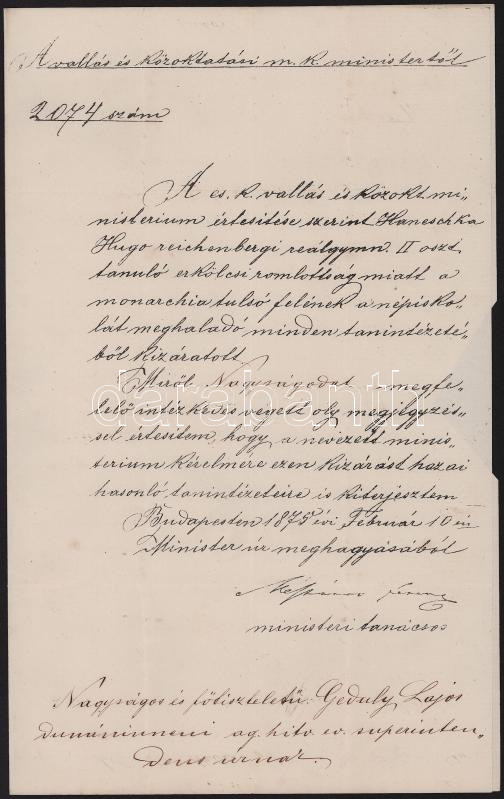 A vallás és közoktatási m. k. ministertől
2074 szám
A cs. k. vallás és közokt. mi-
nisterium értesitése szerint Haneschka
Hugo reichenbergi reálgymn. II oszt
tanuló erkölcsi romlottság miatt a
monarchia tulsó felének a népisko-
lát meghaladó minden tanintézeté-
ből kizáratott
Miről Nagyságodat megfe-
lelő intézkedés végett oly megjegyzés-
sel értesitem, hogy a nevezett minis-
terium kérelmére ezen kizárást hazai
hasonló tanintézeteire is kiterjesztem
Budapesten 1875 évi Február 10 én
Minister úr meghagyásából
Mészáros Ferenc
ministeri tanácsos
Nagyságos és főtiszteletű Geduly Lajos
dunáninneni ág. hitv. ev. superinten-
dens urnak.
darabanth